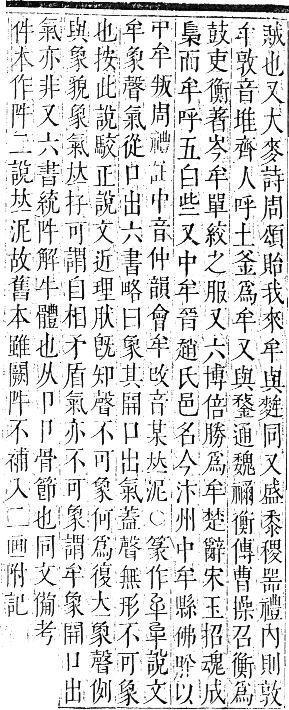 誠也又大麥詩周頌貽我來牟與麰同又盛黍稷器禮內則敦
牟敦音堆齊人呼土釜爲牟又與鍪通魏禰衡傳曹操召衡爲
鼓吏衡著岑牟單絞之服又六博倍勝爲牟楚辭宋玉招魂成
梟而牟呼五白些又中牟晉趙氏邑名今汴州中牟縣佛肸以
中牟叛周禮註中音仲韻會牟改音某𠀤泥〇篆作說文
牟象聲氣從口出六書略曰象其開口出氣蓋聲無形不可象
也按此說駁正說文近理肰旣知聲不可象何爲復大象聲例
與象貌象氣𠀤好可謂自相矛盾氣亦不可象謂牟象開口出
氣亦非又六書統解牛體也从卩卩骨節也同文備考
件本作二說𠀤泥故舊本雖闕不補入二画附記